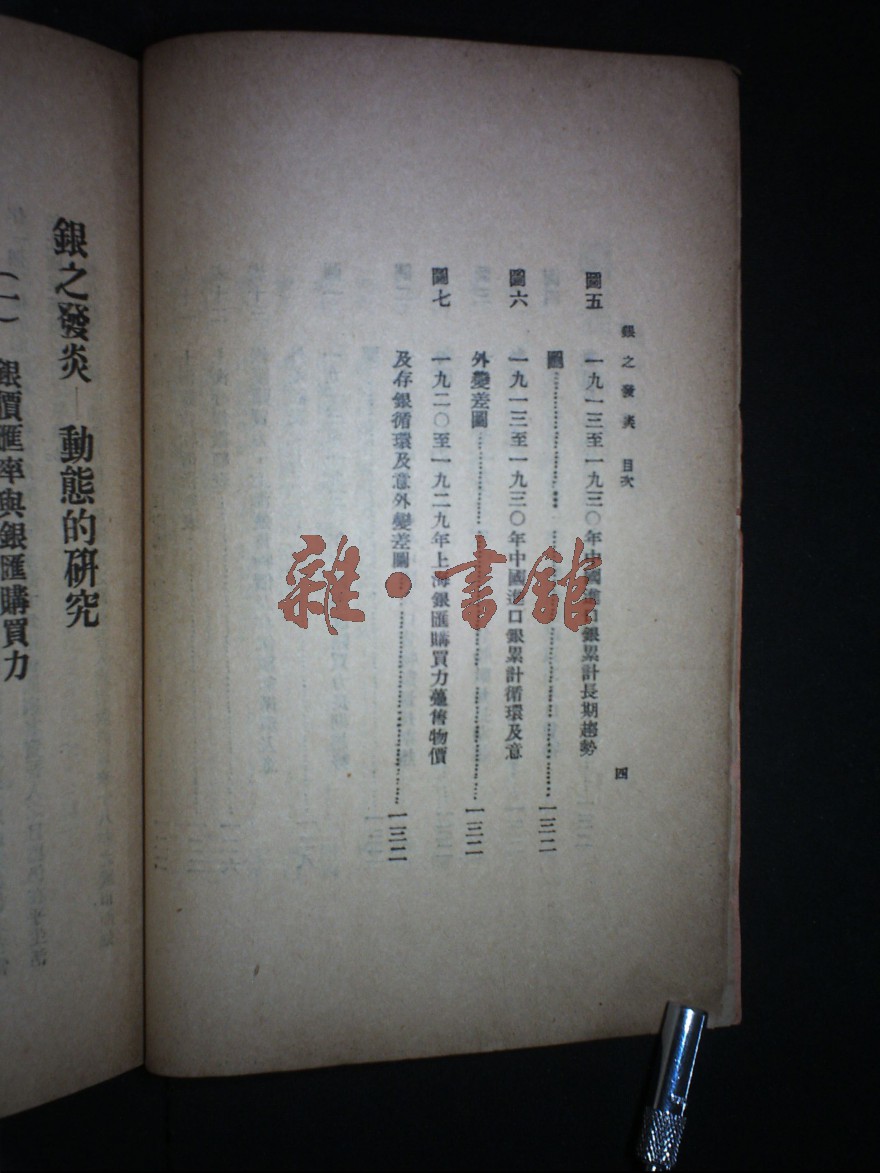 銀之發炎 目次
四
圖五 一九一三至一九三〇年中國進口銀累計長期趨勢
圖……………………一三二
圖六 一九一三至一九三〇年中國進口銀累計循環及意
外變差圖……………………一三二
圖七 一九二〇至一九二九年上海銀匯購買力躉售物價
及存銀循環及意外變差圖……………………一三二
銀之發炎—動態的研究
(一) 銀價匯率與銀匯購買力
雜·書館